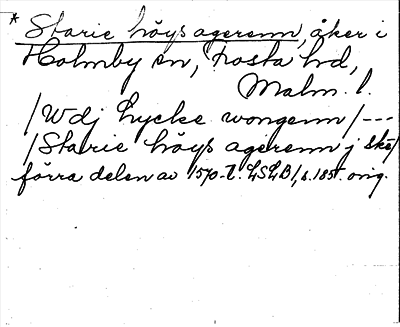 * Starie höys agerenn, åker i
Holmby sn, Frosta hd,
Malm. l.
/Wdj Lycke wongenn/---
/Starie höys agerenn j skö/
förra delen av 1570-t. LSLB1, s. 185. orig.